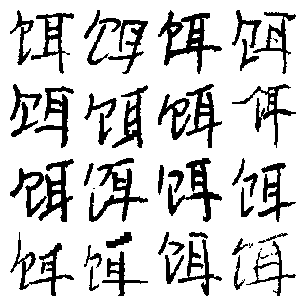 饵饵饵饵
饵饵饵饵
饵饵饵饵
饵饵饵饵